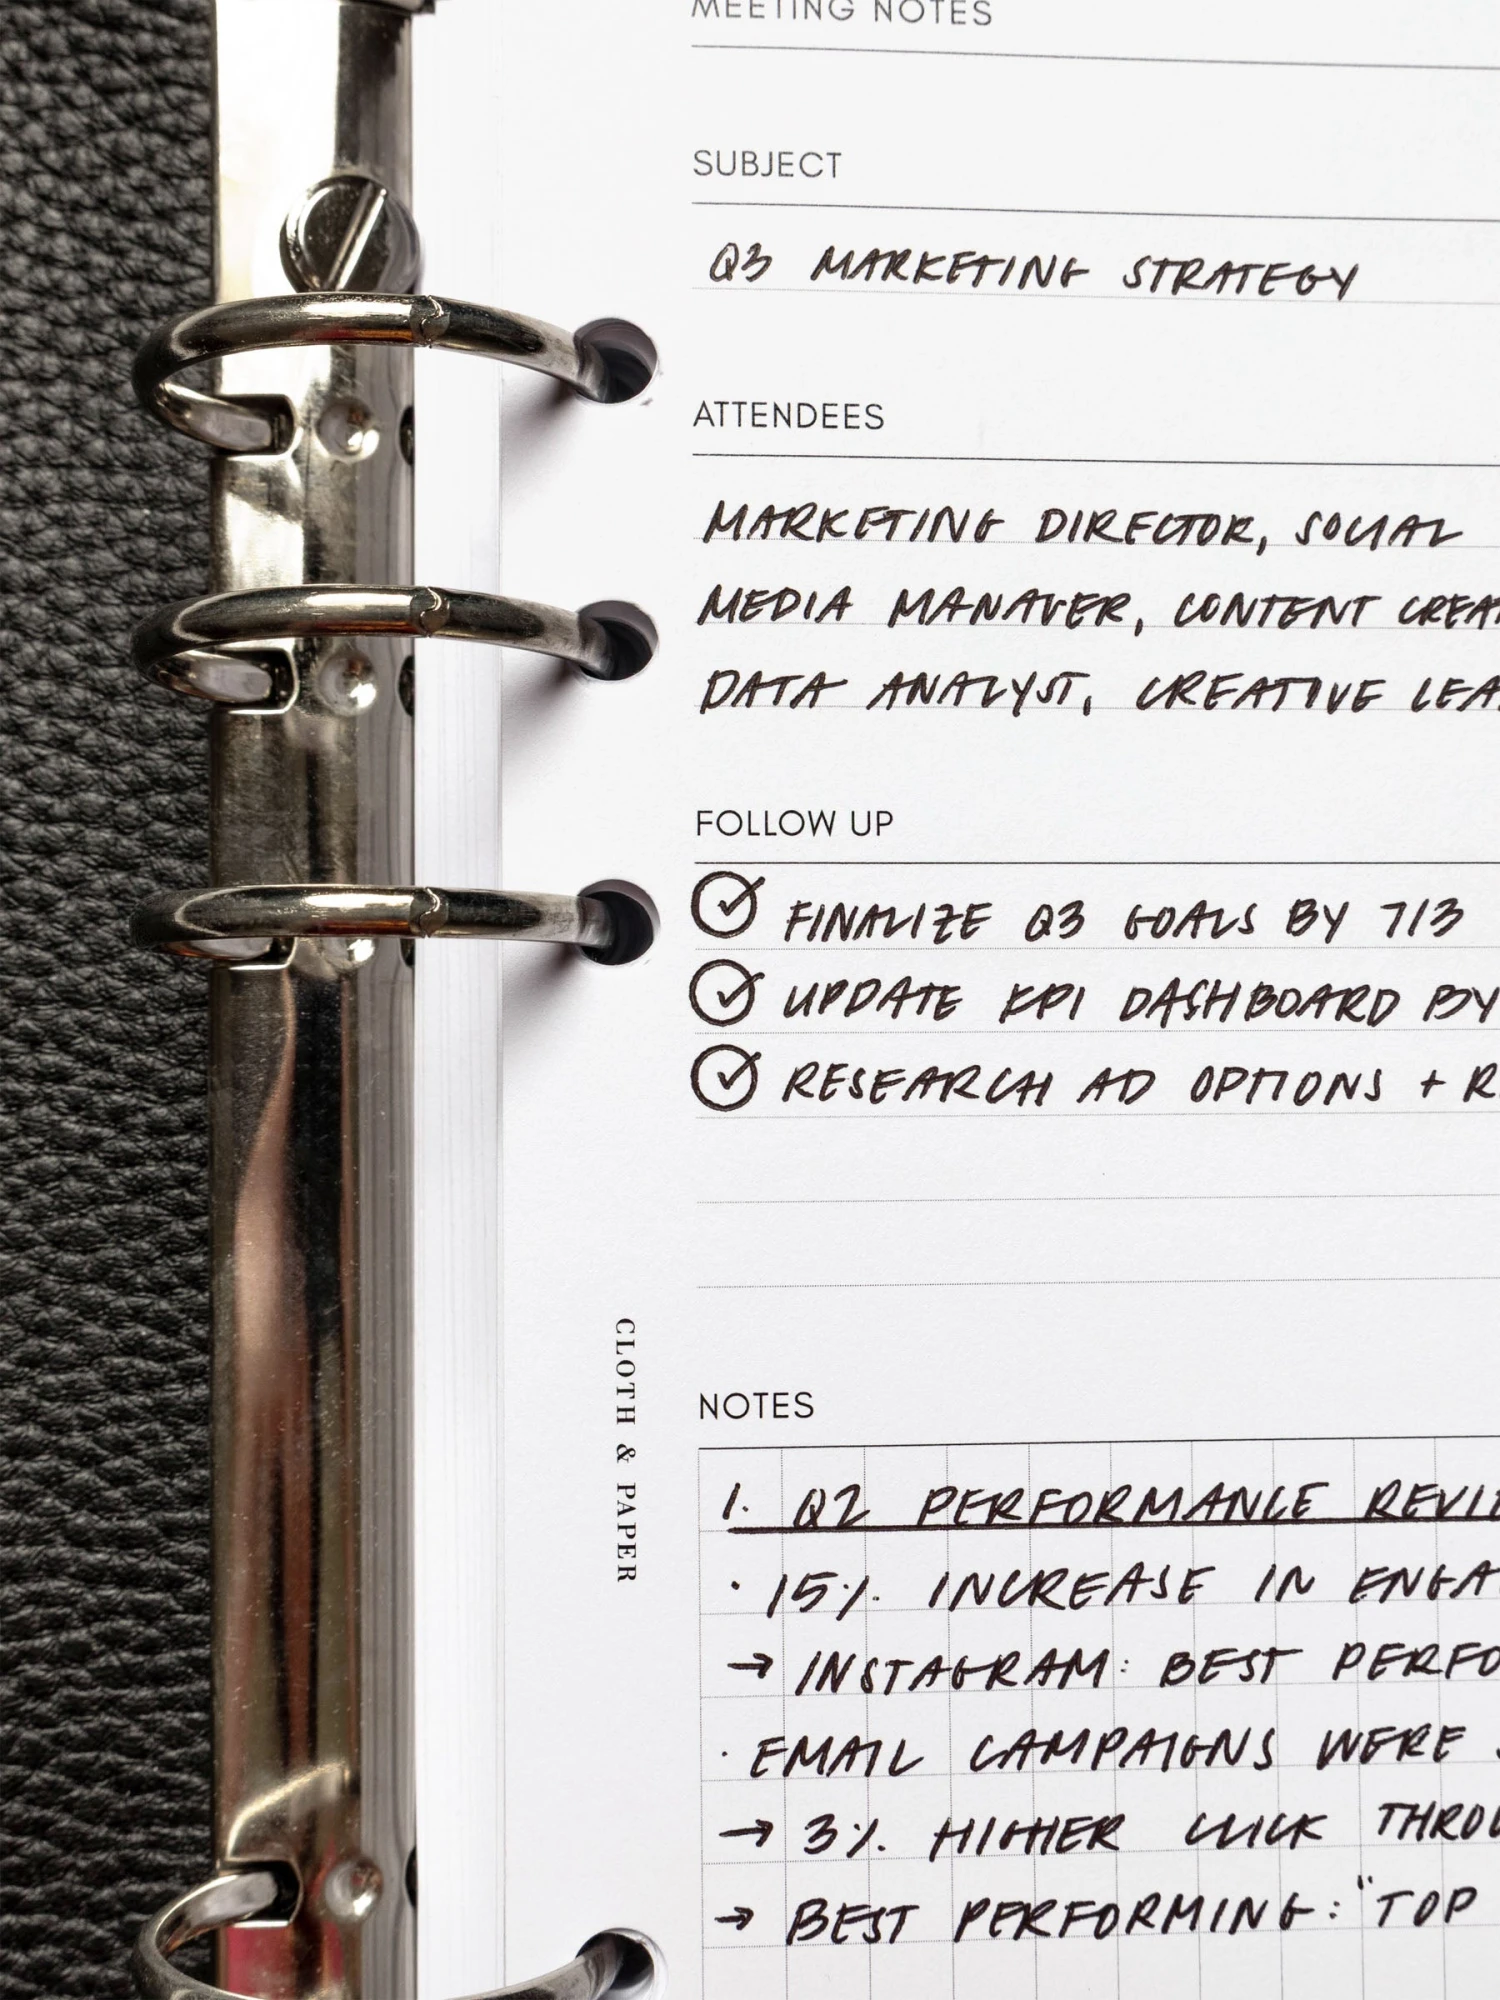 MEETING NOTES
SUBJECT
Q3 MARKETING STRATEGY
ATTENDEES
MARKETING DIRECTOR, SOCIAL
MEDIA MANAGER, CONTENT CREA
DATA ANALYST, CREATIVE LEA
FOLLOW UP
FINALIZE Q3 GOALS BY 7/3
UPDATE KPI DASHBOARD BY
RESEARCH AD OPTIONS + R
CLOTH & PAPER
NOTES
1. Q2 PERFORMANCE REVIE
· 15% INCREASE IN ENGA
→ INSTAGRAM: BEST PERFO
· EMAIL CAMPAIGNS WERE
→ 3% HIGHER CLICK THROU
→ BEST PERFORMING: "TOP